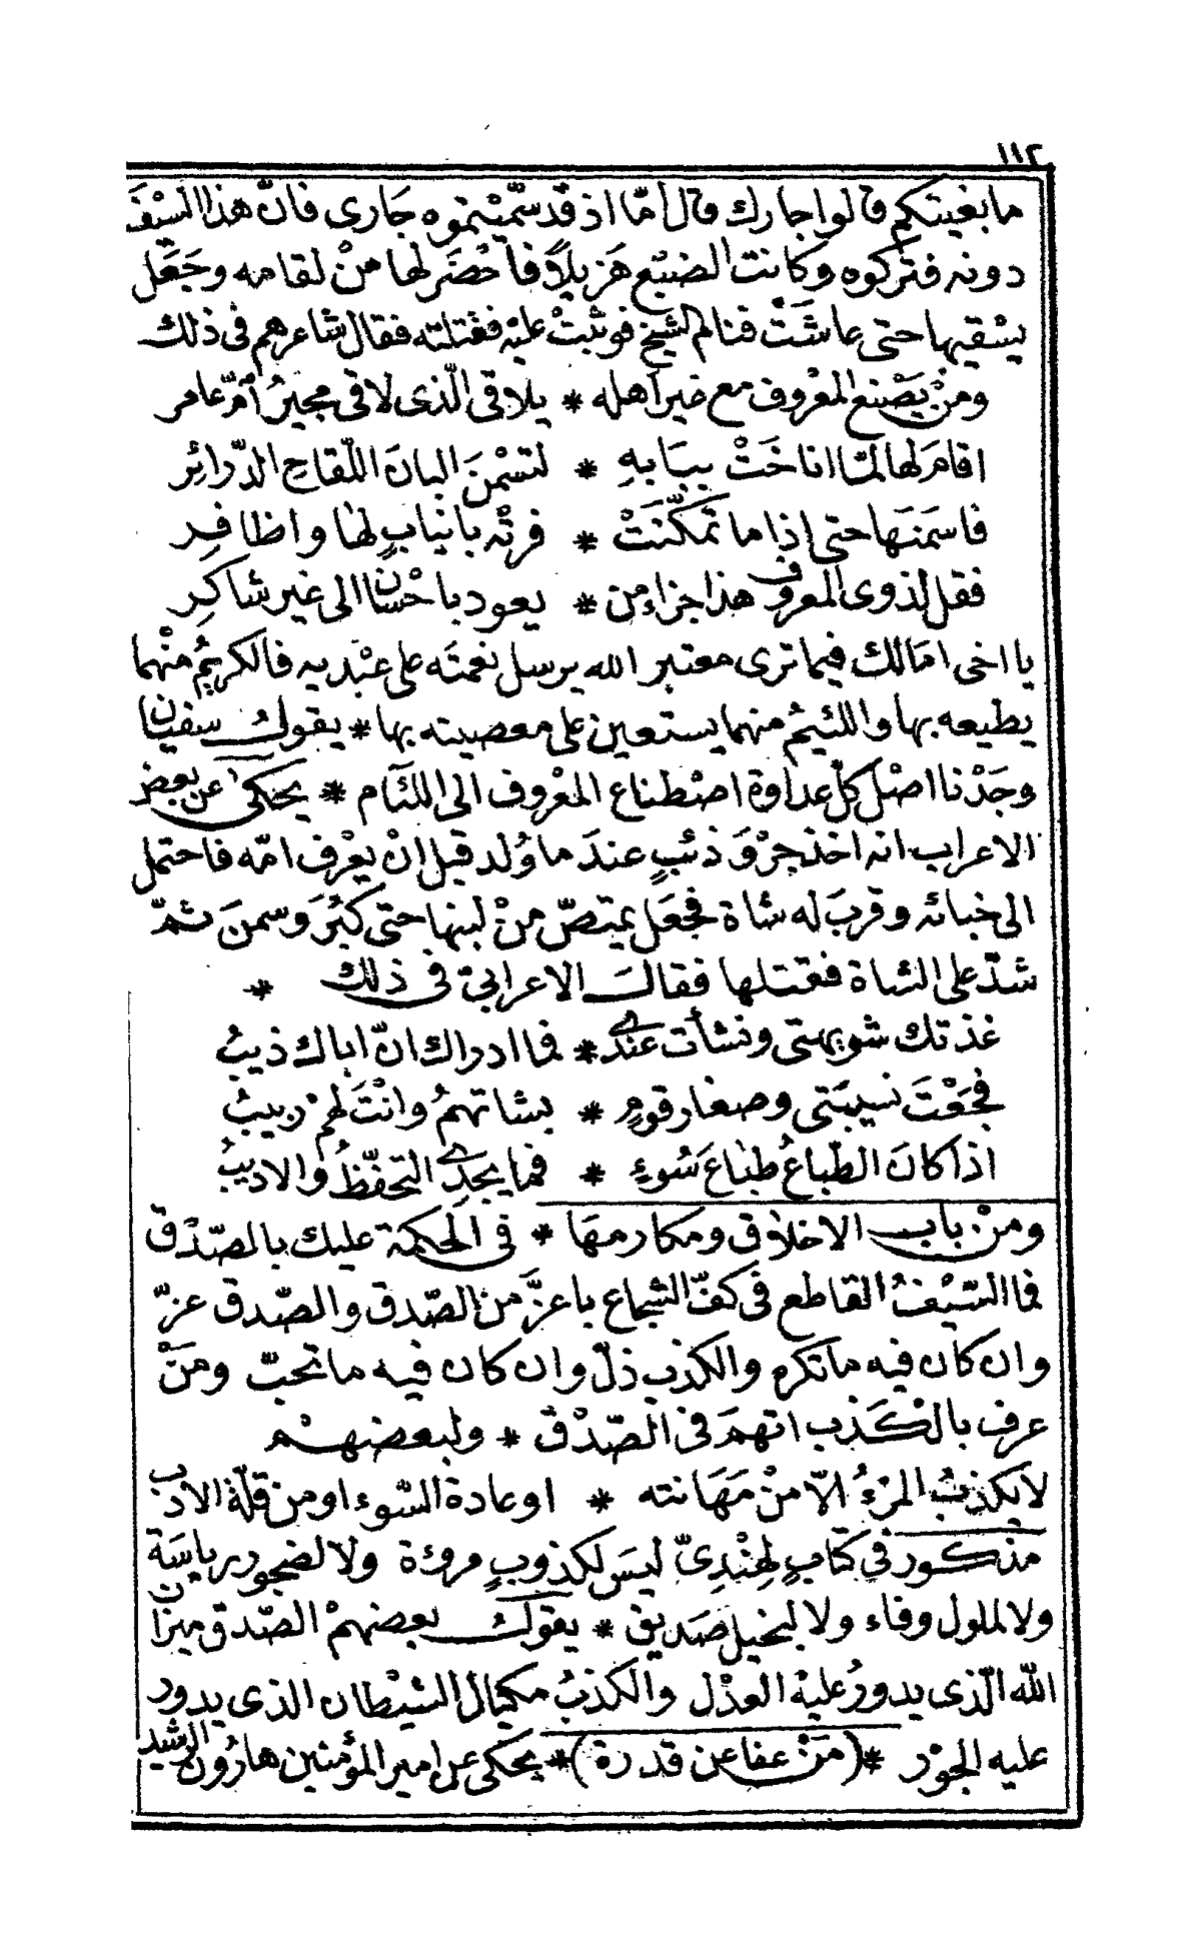 ١١٢
ما بغيتكم قالوا جارك قال امّا اذ قد سمّيْتموه جَارى فانّ هذا السّيْفَ
دونه فتركوه وكانت الضبُع هَزيلاً فأحْضَر لها منْ لقامه وجَعَل
يسْقيها حتى عاشَتْ فنام الشيخ فوثبتْ عليْه فقتلته فقال شاعرهم فى ذلك
ومنْ يَصْنع المعْروف مع غير اهله * يلاقى الّذى لاقى مجيرُ اُمّ عامر
اقامَ لها لمّا اناخَتْ ببَابهِ * لتسْمنَ البانَ اللّقاحِ الدّرائِر
فاسمَنَها حتى اذا ما تمكّنَتْ * فرتْه بانيابٍ لها واظافِر
فقل لذوى المعروف هذا جزاء من * يعود باحْسَان الى غير شاكِر
يا اخى امَالك فيما ترى معتبر الله يرسل نعمتَه على عبْديه فالكريمُ منْهما
يطيعه بها واللئيمُ منهما يستعين على معصيته بها * يقول سفيان
وجَدْنا اصْل كلّ عداوة اصْطناع المعْروف الى اللئآم * يحكى عن بعض
الاعراب انه اخذ جرْوَ ذئبٍ عندَ ما وُلد قبل انْ يعْرف امّه فاحتمل
الى خبائه وقربَ له شاة فجعَل يمتصّ منْ لبنها حتى كبُرَ وسمنَ ثمّ
شدّ على الشاة فقتلها فقال الاعرابىّ فى ذلك *
غذتك شويهتى ونشأت عندى * فما ادراك انّ اباك ذيبُ
فجَعْتَ نسيبَتى وصغار قومٍ * بشاتهمُ وانْتَ لهمْ ربيبُ
اذا كانَ الطّباعُ طباعَ سُوءٍ * فما يجدِى التحفّظُ والاديبُ
ومنْ باب الاخلاق ومكارمهَا * فى الحكمة عليك بالصّدْق
فما السّيْفُ القاطع فى كفّ الشجاع باعزَّ من الصّدق والصّدق عزّ
وان كان فيه ماتكره والكذب ذلّ وان كان فيه ماتحبّ ومَنْ
عرف بالكذب اتهمَ فى الصّدْق * ولبعضهمْ
لايكذبُ المرْءُ الاّ منْ مَهَانته * او عادة السّوء او من قلّة الادب
مذكور فى كتَابٍ لهِنْدِىّ ليسَ لكذوبٍ مروءة ولا لضجور رياسَة
ولا لملول وفاء ولا لبخيل صَديق * يقول بعضهمْ الصّدق ميزان
الله الّذى يدورُ عليْه العدْل والكذبُ مكيال الشيْطان الذى يدور
عليه الجوْر *(مَنْ عفا عن قدرة)* يحكى عن امير المؤمنين هارُون الرشيد